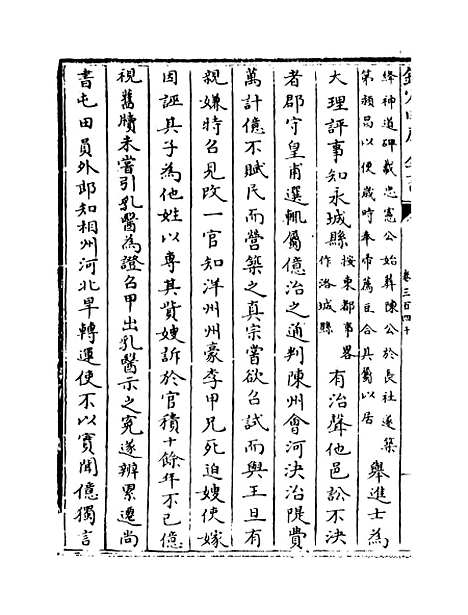 卷三百四十
絳神道碑載忠憲公始葬陳公於長社遂築
第潁昌以便歲時奉帝薦豆合其屬以居
舉進士為
大理評事知永城縣按東都事畧作洛城縣有治聲他邑訟不決
者郡守皇甫選輒屬億治之通判陳州會河決治隄費
萬計億不賦民而營築之真宗嘗欲召試而與王旦有
親嫌特召見改一官知洋州州豪李甲兄死迫嫂使嫁
因誣其子為他姓以專其貲嫂訴於官積十餘年不已億
視舊牘未嘗引乳醫為證召甲出乳醫示之冤遂辨累遷尚
書屯田員外郎知相州河北旱轉運使不以實聞億獨言